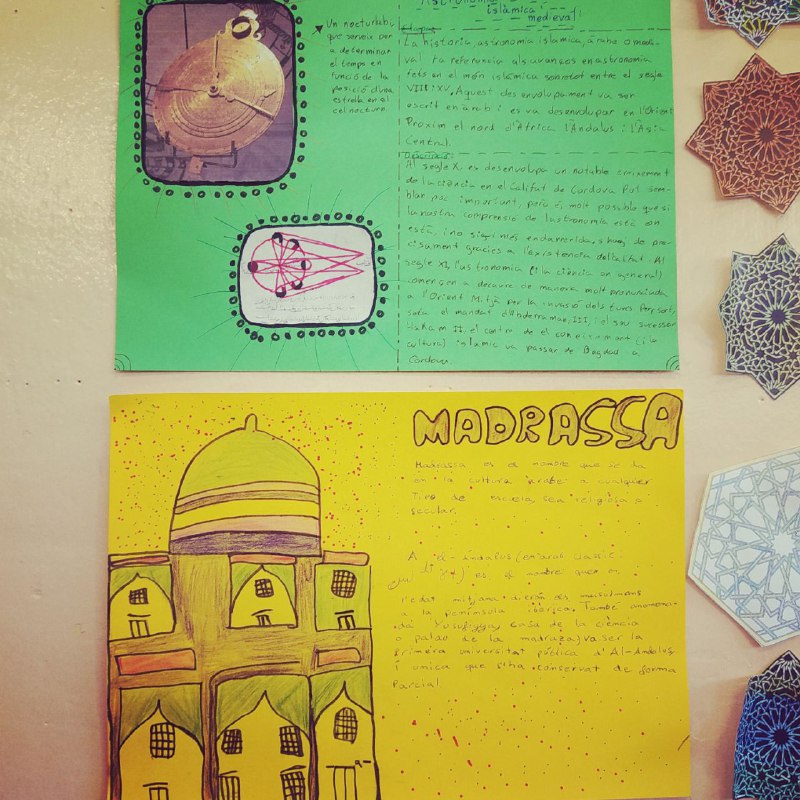 Astronomia
islàmica
medieval
Un nocturlabi,
que serveix per
a determinar
el temps en
funció de la
posició d'una
estrella en el
cel nocturn.
La història, astronomia islàmica, àrabe o medie-
val fa referencia als avanços en astronomia
fets en el món islàmic sobretot entre el segle
VIII i XV. Aquest desenvolupament va ser
escrit en àrab i es va desenvolupar en l'Orient
Pròxim el nord d'Àfrica l'Àndalus i l'Àsia
Central.
Al segle X, es desenvolupa un notable creixement
de la ciència en el Califat de Cordova Pot sem-
blar poc important, però és molt possible que si
la nostra comprensió de l'astronomia està on
està, i no sigui més endarrerida, s'hagi de pre-
cisament gracies a l'existència del califat. Al
segle XI, l'astronomia (i la ciència en general)
començen a decaure de manera molt pronunciada
a l'Orient Mitjà per la invasió dels turcs Per sort,
sota el mandat d'Abderraman III, i el seu successor
Hakam II, el centre de el coneixement (i la
cultura) islàmic va passar de Bagdad a
Cordova.
MADRASSA
Madrassa es el nombre que se da
en la cultura arabe a cualquier
Tipo de escuela, sea religiosa o
secular.
A el-Andalus (en àrab clàssic:
es el nombre que en
l'edat mitjana dieran els musulmans
a la península ibèrica. També anomena-
da Yusufiyya, casa de la ciència
o palao de la madraza) va ser la
primera universitat pública d'Al-Andalus
i unica que s'ha conservat de forma
Parcial.